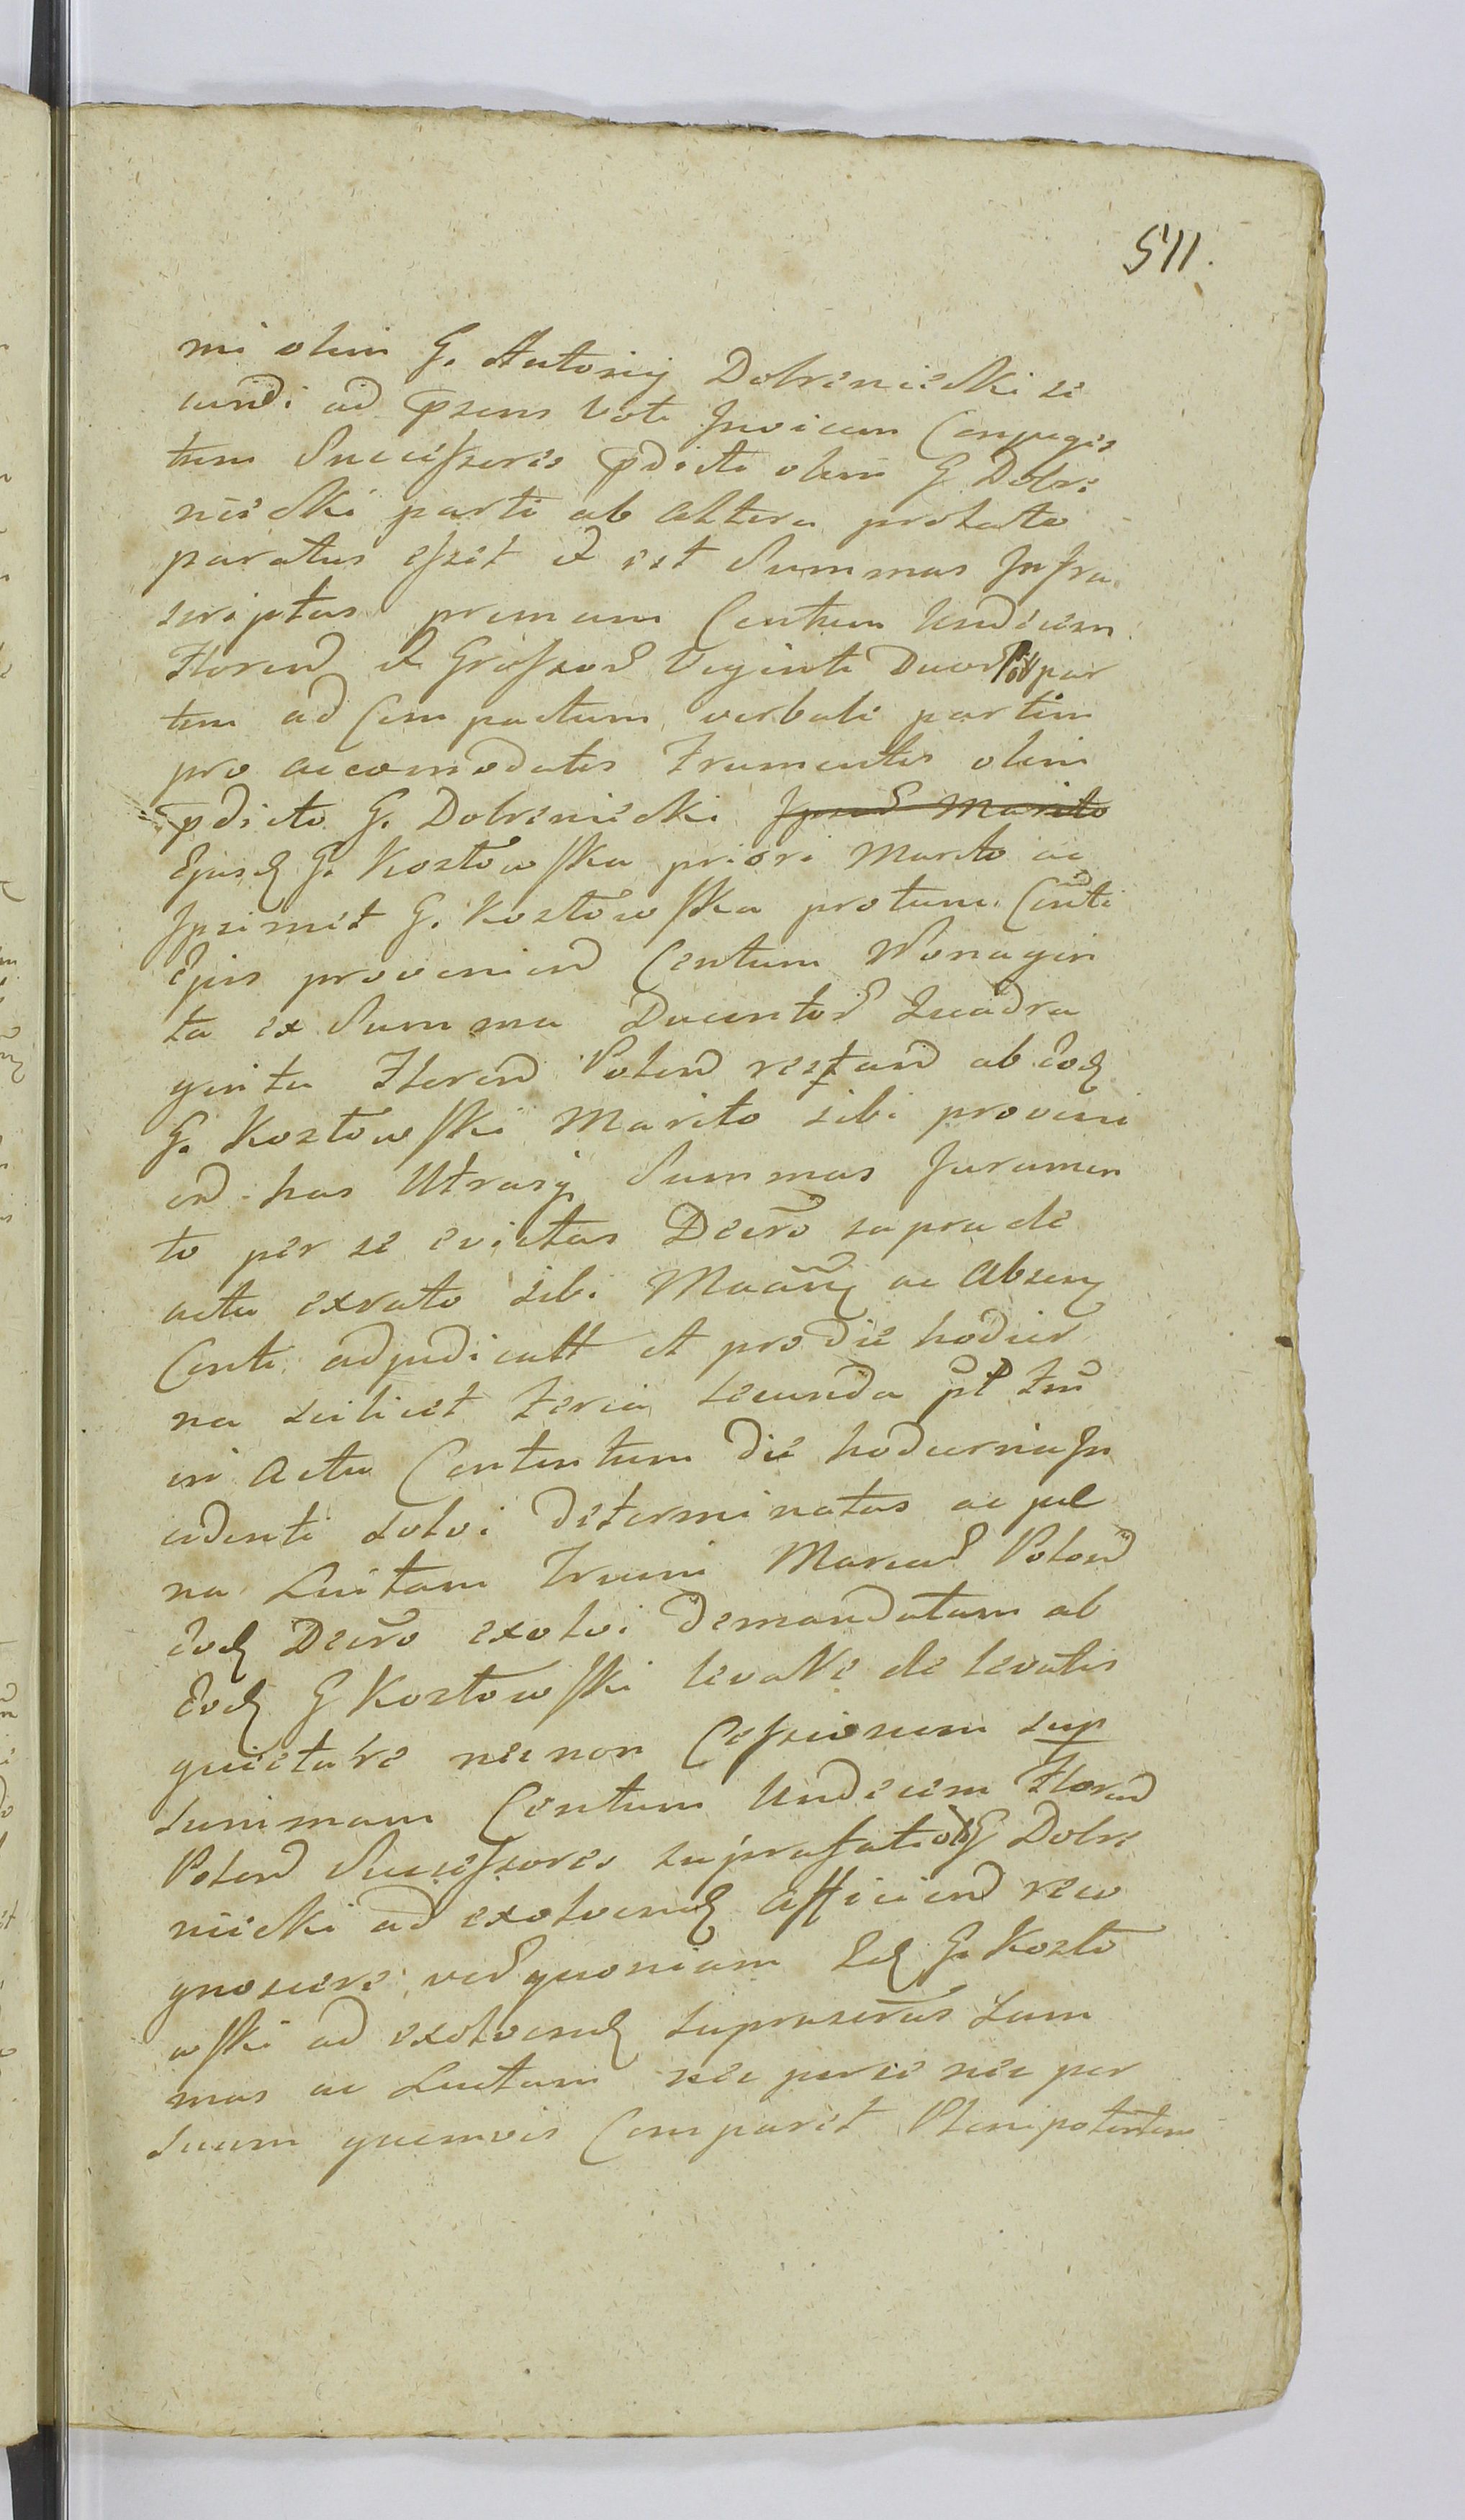 511.
mi olim G. Antonij Dobrzeniecki se
cundi ad p̅sens voti Invicem Conjuges
tum Successores p̅dicti olim G Dobrze
niecki parti ab altera probato
paratus esset et est Summas Infra
scriptas primam Centum Undecim
Floren̅ et Grossor̅ Viginti Duor̅ par
tim ad Compactum verbale partim
pro accomodatis Frumentis olim
p̅dicto G. Dobrzeniecki Ipsius Marito
Ejusd G. Kozłowska priori Marito ac
Ipsimet G. Kozłowska protunc Con̅ti
Ejus provenien̅ Centum Nonagin
ta ex Summa Ducentor̅ Quadra
ginta Floren̅ Polon̅ restan̅ ab Eod
G. Kozłowski Marito sibi proveni
en̅ has Utrasq Summas Juramen
to per se evictas Decr̅o supra de
actu exrato sibi ac Absen
Conti adjudicatt et pro die hodier
na scilicet Feria secunda
in Actu Contentum die hodierna In
cidenti solvi determinatas ac pœ
na Luitam Trium Marcar̅ Polon̅
Eod Decr̅o exolvi demandatam ab
Eod G Kozłowski levare de levatis
quietare nec non Cessionem sup
summam Centum Undecim Floren̅
Polon̅ Successores suprafati ol G Dobrze
niecki ad exolvend afficien̅ reco
gnoscere, ver̅ quoniam Id G. Kozło
wski ad exolvend suprascr̅as Sum
mas ac Luitam nec per se nec per
suum quemvis Comparet Plenipotentem